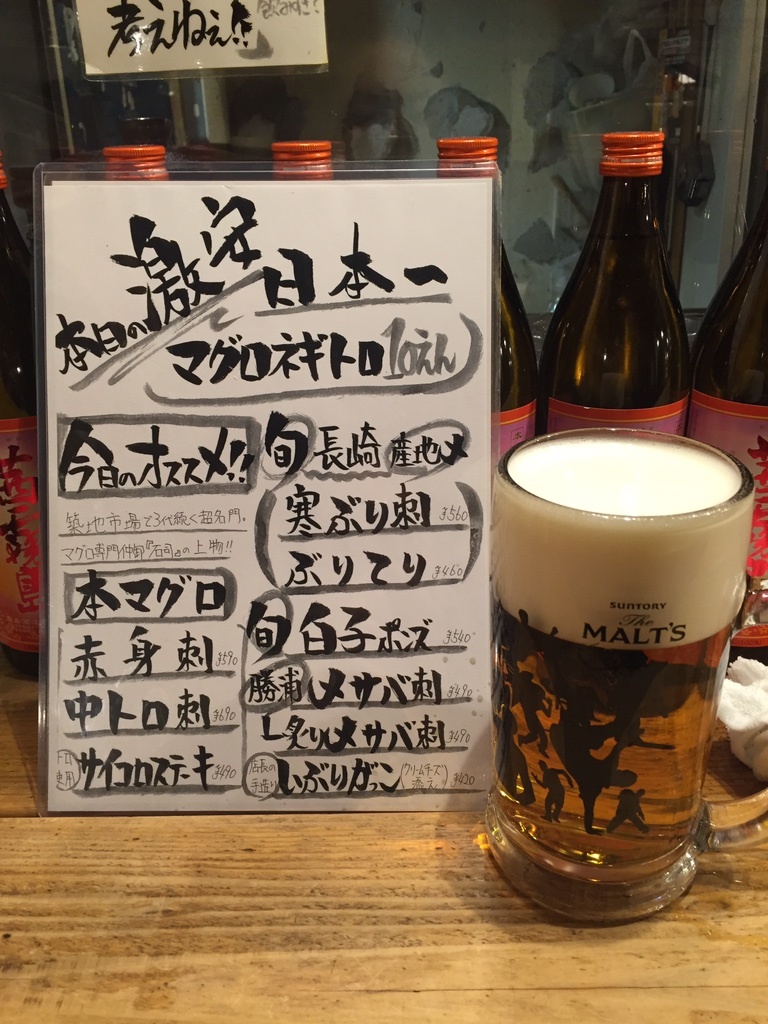 考えねぇ!!
激安
日本一
本日の
マグロネギトロ10えん
今日のオススメ!!
築地市場で3代続く超名門。
マグロ専門仲卸『石司』の上物!!
本マグロ
赤身刺 ¥590
中トロ刺 ¥690
サイコロステーキ ¥490
旬 長崎産地〆
寒ぶり刺 ¥560
ぶりてり ¥460
旬 白子ポンズ ¥540
勝浦〆サバ刺 ¥490
炙り〆サバ刺 ¥490
店長の手造り いぶりがっこ (クリームチーズ添え) ¥420
SUNTORY
The
MALT'S
茜霧島